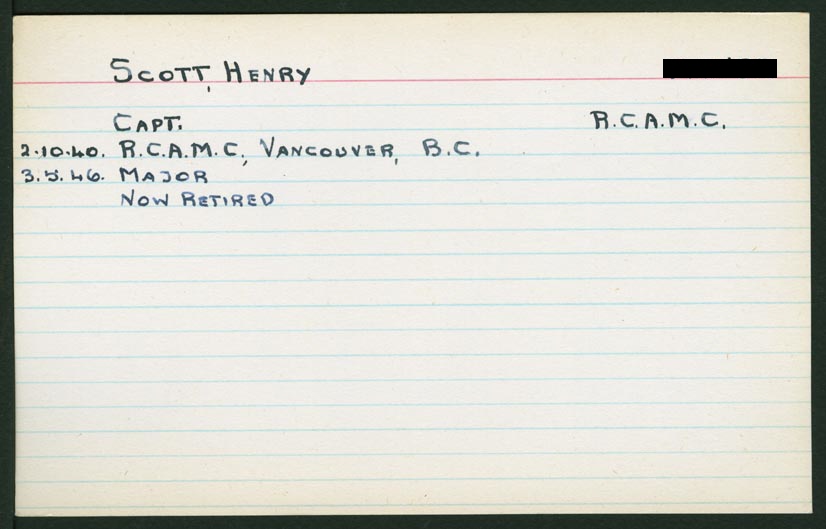 SCOTT, HENRY
CAPT. R.C.A.M.C.
2.10.40. R.C.A.M.C., VANCOUVER, B.C.
3.5.46. MAJOR
NOW RETIRED